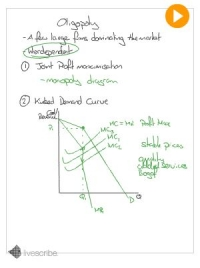 Oligopoly
- A few large firms dominating the market
Interdependent
① Joint Profit maximisation
- monopoly diagram
② Kinked Demand Curve
Cost
Revenue
P₁
MC₃
MC₁
MC₂
MC = MR Profit Max
Stable prices
quality
added services
Q₁
D
Q
MR
livescribe